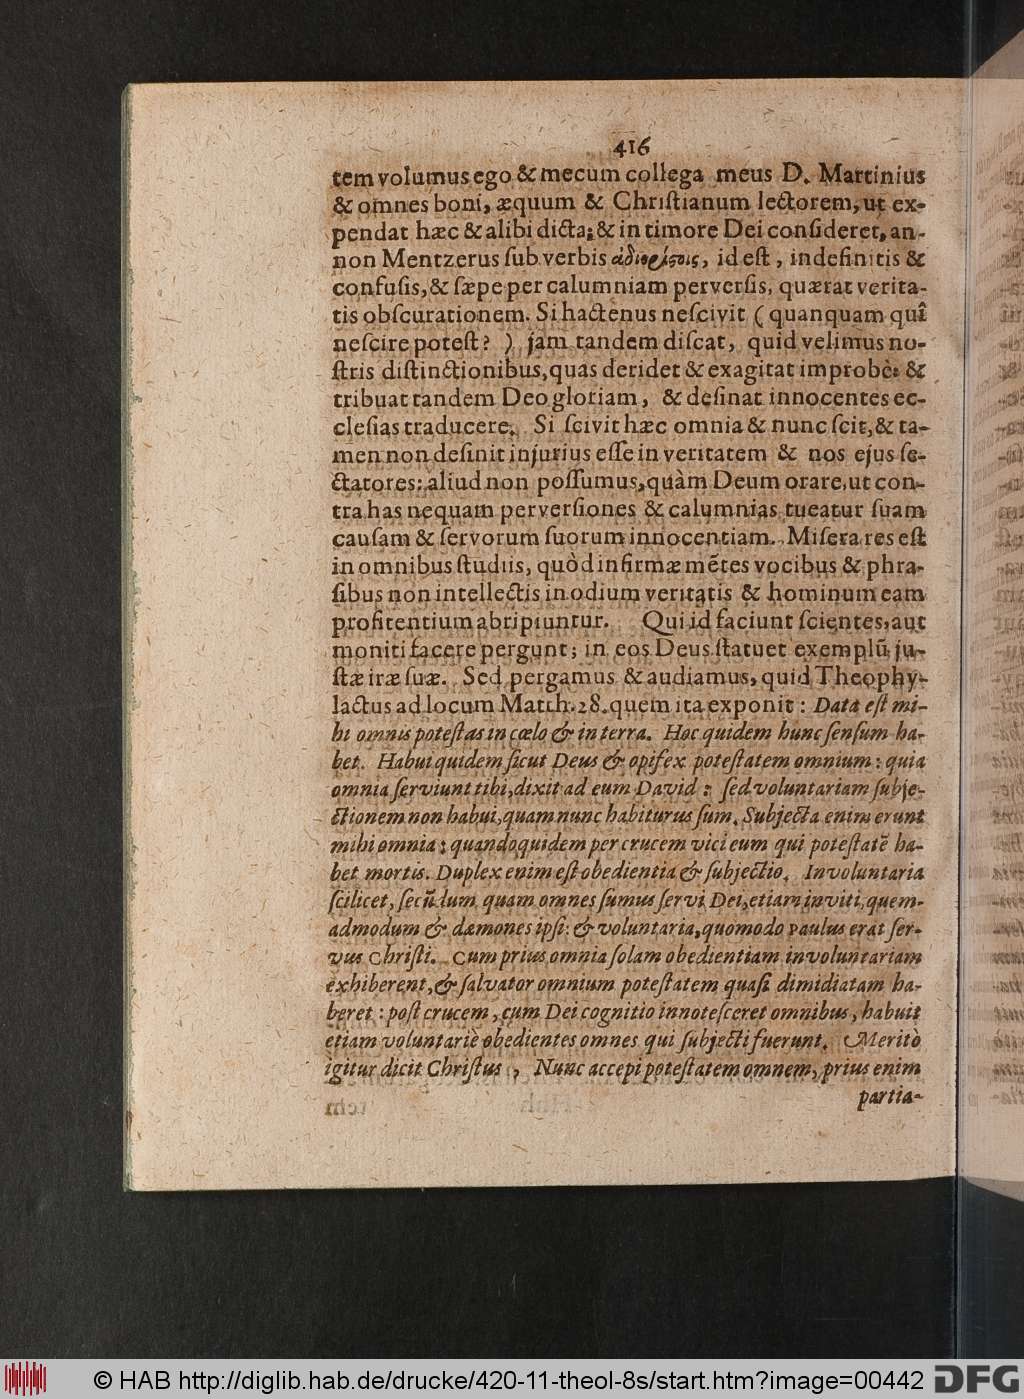 416
tem volumus ego & mecum collega meus D. Martinius
& omnes boni, æquum & Chriſtianum lectorem, ut ex-
pendat hæc & alibi dicta; & in timore Dei conſideret, an-
non Mentzerus ſub verbis ἀδιορίστοις, id eſt, indefinitis &
confuſis, & ſæpe per calumniam perverſis, quærat verita-
tis obſcurationem. Si hactenus neſcivit (quanquam quî
neſcire poteſt?) jam tandem diſcat, quid velimus no-
ſtris diſtinctionibus, quas deridet & exagitat improbè: &
tribuat tandem Deo gloriam, & deſinat innocentes ec-
cleſias traducere. Si ſcivit hæc omnia & nunc ſcit, & ta-
men non deſinit injurius eſſe in veritatem & nos ejus ſe-
ctatores: aliud non poſſumus, quàm Deum orare, ut con-
tra has nequam perverſiones & calumnias tueatur ſuam
cauſam & ſervorum ſuorum innocentiam. Miſera res eſt
in omnibus ſtudiis, quòd infirmæ mẽtes vocibus & phra-
ſibus non intellectis in odium veritatis & hominum eam
profitentium abripiuntur. Qui id faciunt ſcientes, aut
moniti facere pergunt; in eos Deus ſtatuet exemplũ ju-
ſtæ iræ ſuæ. Sed pergamus & audiamus, quid Theophy-
lactus ad locum Matth. 28. quem ita exponit: Data eſt mi-
hi omnis poteſtas in cœlo & in terra. Hoc quidem hunc ſenſum ha-
bet. Habui quidem ſicut Deus & opifex poteſtatem omnium: quia
omnia ſerviunt tibi, dixit ad eum David: ſed voluntariam ſubje-
ctionem non habui, quam nunc habiturus ſum. Subjecta enim erunt
mihi omnia: quandoquidem per crucem vici eum qui poteſtatẽ ha-
bet mortis. Duplex enim eſt obedientia & ſubjectio. Involuntaria
ſcilicet, ſecũdum quam omnes ſumus ſervi Dei, etiam inviti, quem-
admodum & dæmones ipſi: & voluntaria, quomodo Paulus erat ſer-
vus Chriſti. Cum prius omnia ſolam obedientiam involuntariam
exhiberent, & ſalvator omnium poteſtatem quaſi dimidiatam ha-
beret: poſt crucem, cum Dei cognitio innoteſceret omnibus, habuit
etiam voluntariè obedientes omnes qui ſubjecti fuerunt. Meritò
igitur dicit Chriſtus, Nunc accepi poteſtatem omnem, prius enim
partia-
© HAB http://diglib.hab.de/drucke/420-11-theol-8s/start.htm?image=00442
DFG